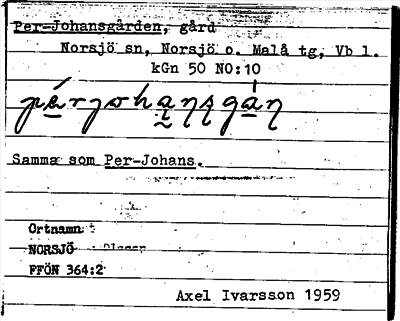 Per-Johansgården, gård
Norsjö sn, Norsjö o. Malå tg, Vb l.
kGn 50 NO:10
Samma som Per-Johans.
Ortnamn:
NORSJÖ
FFÖN 364:2
Axel Ivarsson 1959